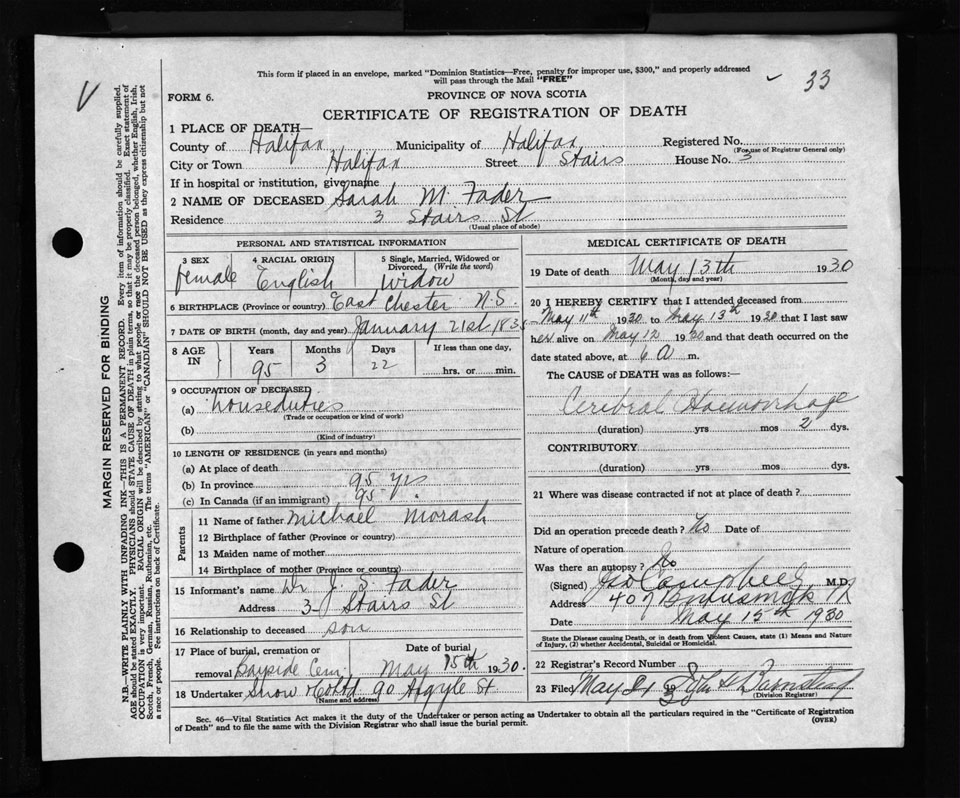 This form if placed in an envelope, marked "Dominion Statistics—Free, penalty for improper use, $300," and properly addressed
will pass through the Mail "FREE"
33
V
FORM 6.
PROVINCE OF NOVA SCOTIA
CERTIFICATE OF REGISTRATION OF DEATH
1 PLACE OF DEATH—
County of Halifax Municipality of Halifax Registered No.
(For use of Registrar General only)
City or Town Halifax Street Stairs House No. 3
If in hospital or institution, give name
2 NAME OF DECEASED Sarah M. Fader
Residence 3 Stairs St
(Usual place of abode)
PERSONAL AND STATISTICAL INFORMATION
3 SEX 4 RACIAL ORIGIN 5 Single, Married, Widowed or
Divorced. (Write the word)
female English Widow
6 BIRTHPLACE (Province or country) East Chester N.S.
7 DATE OF BIRTH (month, day and year) January 21st 1835
8 AGE IN Years Months Days If less than one day,
95 3 22 hrs. or min.
9 OCCUPATION OF DECEASED
(a) houseduties
(Trade or occupation or kind of work)
(b)
(Kind of industry)
10 LENGTH OF RESIDENCE (in years and months)
(a) At place of death
(b) In province 95 yrs
(c) In Canada (if an immigrant) 95 "
Parents
11 Name of father Michael Morash
12 Birthplace of father (Province or country)
13 Maiden name of mother
14 Birthplace of mother (Province or country)
15 Informant's name Dr J. S. Fader
Address 3 Stairs St
16 Relationship to deceased son
17 Place of burial, cremation or Date of burial
removal Bayside Cem. May 15th 1930.
18 Undertaker Snow & Co Ltd 90 Argyle St
(Name and address)
MEDICAL CERTIFICATE OF DEATH
19 Date of death May 13th 1930
(Month, day and year)
20 I HEREBY CERTIFY that I attended deceased from
May 11th 1930 to May 13th 1930 that I last saw
her alive on May 12 1930 and that death occurred on the
date stated above, at 6 A m.
The CAUSE of DEATH was as follows:—
Cerebral Haemorrhage
(duration) yrs mos 2 dys.
CONTRIBUTORY
(duration) yrs mos dys.
21 Where was disease contracted if not at place of death?
Did an operation precede death? No Date of
Nature of operation
Was there an autopsy? No
(Signed) Campbell M.D.
Address 407
Date May 15th 1930
State the Disease causing Death, or in death from Violent Causes, state (1) Means and Nature
of Injury, (2) whether Accidental, Suicidal or Homicidal.
22 Registrar's Record Number
23 Filed May 21 1930
(Division Registrar)
Sec. 46—Vital Statistics Act makes it the duty of the Undertaker or person acting as Undertaker to obtain all the particulars required in the "Certificate of Registration
of Death" and to file the same with the Division Registrar who shall issue the burial permit.
(OVER)
MARGIN RESERVED FOR BINDING
N.B.—WRITE PLAINLY WITH UNFADING INK—THIS IS A PERMANENT RECORD. Every item of information should be carefully supplied.
AGE should be stated EXACTLY. PHYSICIANS should STATE CAUSE OF DEATH in plain terms, so that it may be properly classified. Exact statement of
OCCUPATION is very important. RACIAL ORIGIN will be described by stating to what people or race the deceased person belonged, whether English, Irish,
Scotch, French, German, Russian, Ruthenian, etc. The terms "AMERICAN" or "CANADIAN" SHOULD NOT BE USED as they express citizenship but not
a race or people. See instructions on back of Certificate.